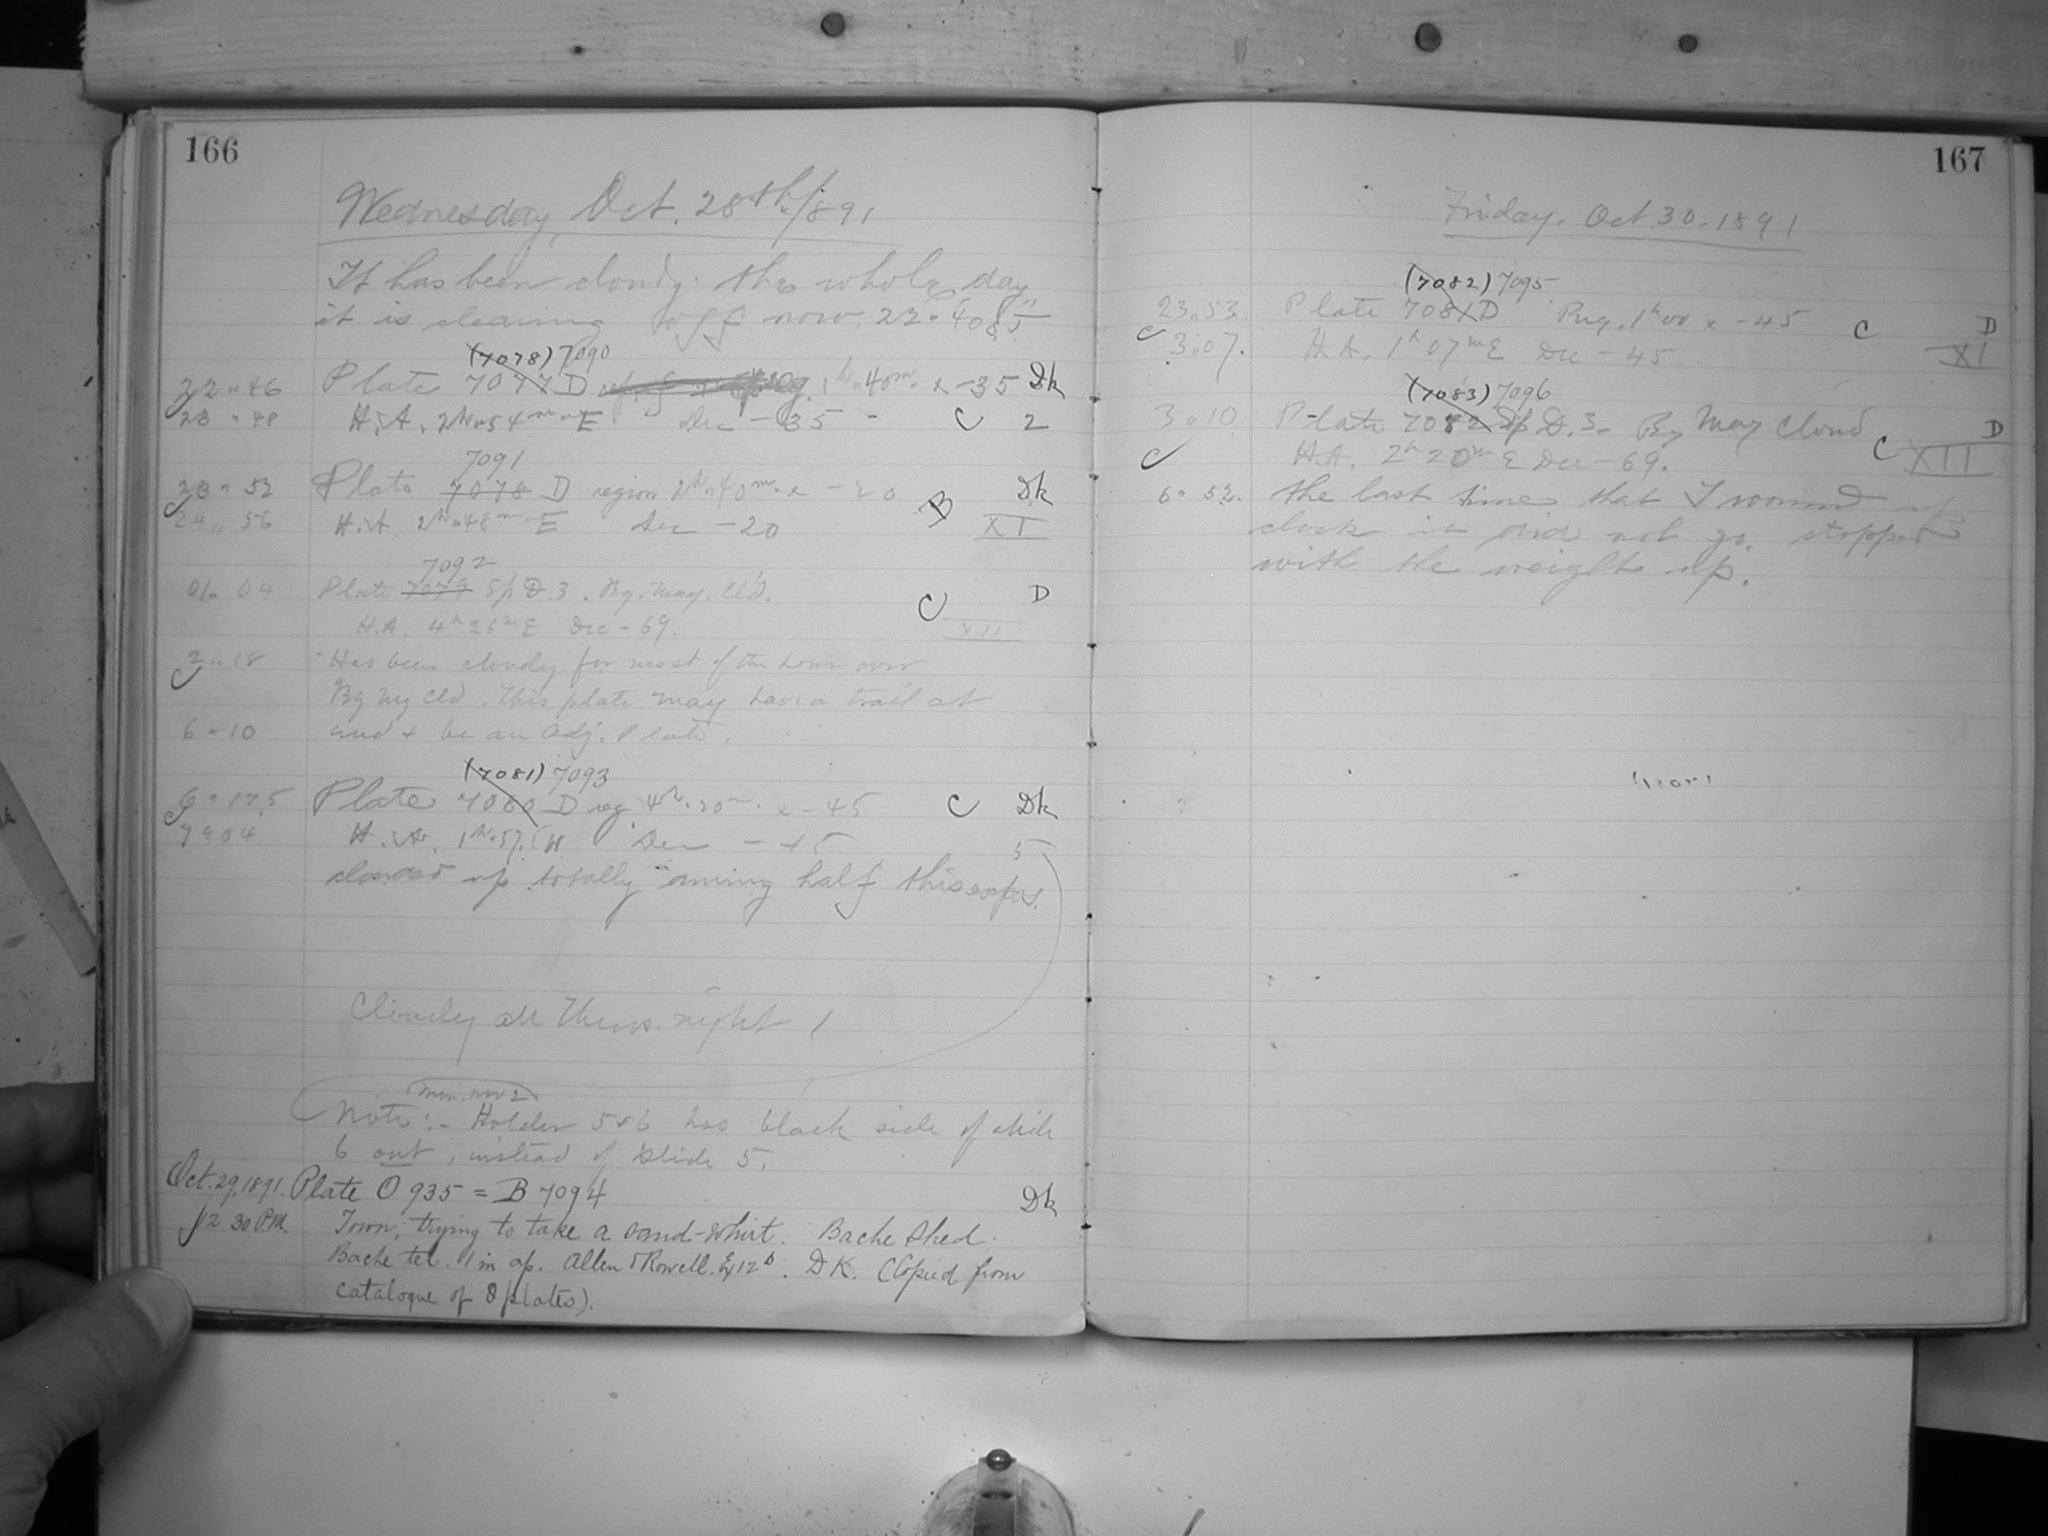 166
Wednesday, Oct. 28th/891
It has been cloudy the whole day
it is clearing off now, 22h 40m 85
(7078) 7090
22 " 46 Plate 7077 D reg. 1h. 40m. x -35 Dk
23 " 48 H.A. 2h 54m E Dec - 35 - C 2
7091
23 " 52 Plate 7078 D region 2h. 40m. x - 20 B Dk
24 " 56 H.A. 2h 48m E Dec - 20 XI
7092
01 " 04 Plate 7079 Sp D 3. Bg. May. Cl'd. C D
H.A. 4h 26m E Dec - 69. XII
2 " 18 Has been cloudy for most of the hour over
Bg My Cld. This plate may have a trail at
6 " 10 end & be an Adj. Plate.
(7081) 7093
6 " 17.5 Plate 7080 D reg 4h. 20m. x - 45 C Dk
7 " 04 H.A. 1h. 57. W Dec - 45 5
clouded up totally during half this expos.
Cloudy all Thurs. night
Mon. Nov 2
Note:- Holder 5 & 6 has black side of slide
6 out, instead of slide 5.
Oct. 29, 1891. Plate O 935 = B 7094 Dk
12 30 P.M. Town; trying to take a sand-whirl. Bache Shed.
Bache tel. 1 in ap. Allen & Rowell. Ex 12s. DK. (Copied from
catalogue of O plates).
167
Friday. Oct. 30. 1891
(7082) 7095
23 " 53. Plate 7081 D Reg. 1h 00 x - 45 C D
3 " 07. H.A. 1h 07m E Dec - 45 XI
(7083) 7096
3 " 10 Plate 7082 Sp D. 3. Bg May Cloud D
H.A. 2h 20m E Dec - 69. C XII
6 " 52. the last time that I wound up
clock it did not go. stopped
with the weights up.